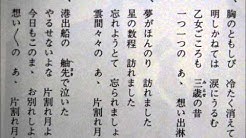 胸のともしび 冷たく消え
明しかねては 涙にうるむ
乙女ごころも 三歳の昔
一つ一つの あゝ 想い出淋
夢がほんのり 訪れました
星の数程 訪れました
忘れようとて 忘られましょ
雲間々々の あゝ 片割れ月
港出船の 舳先で泣いた
やるせないよな 片割れ月
今日もこのまゝ お別れしよ
想いくの あゝ 片割れ月よ